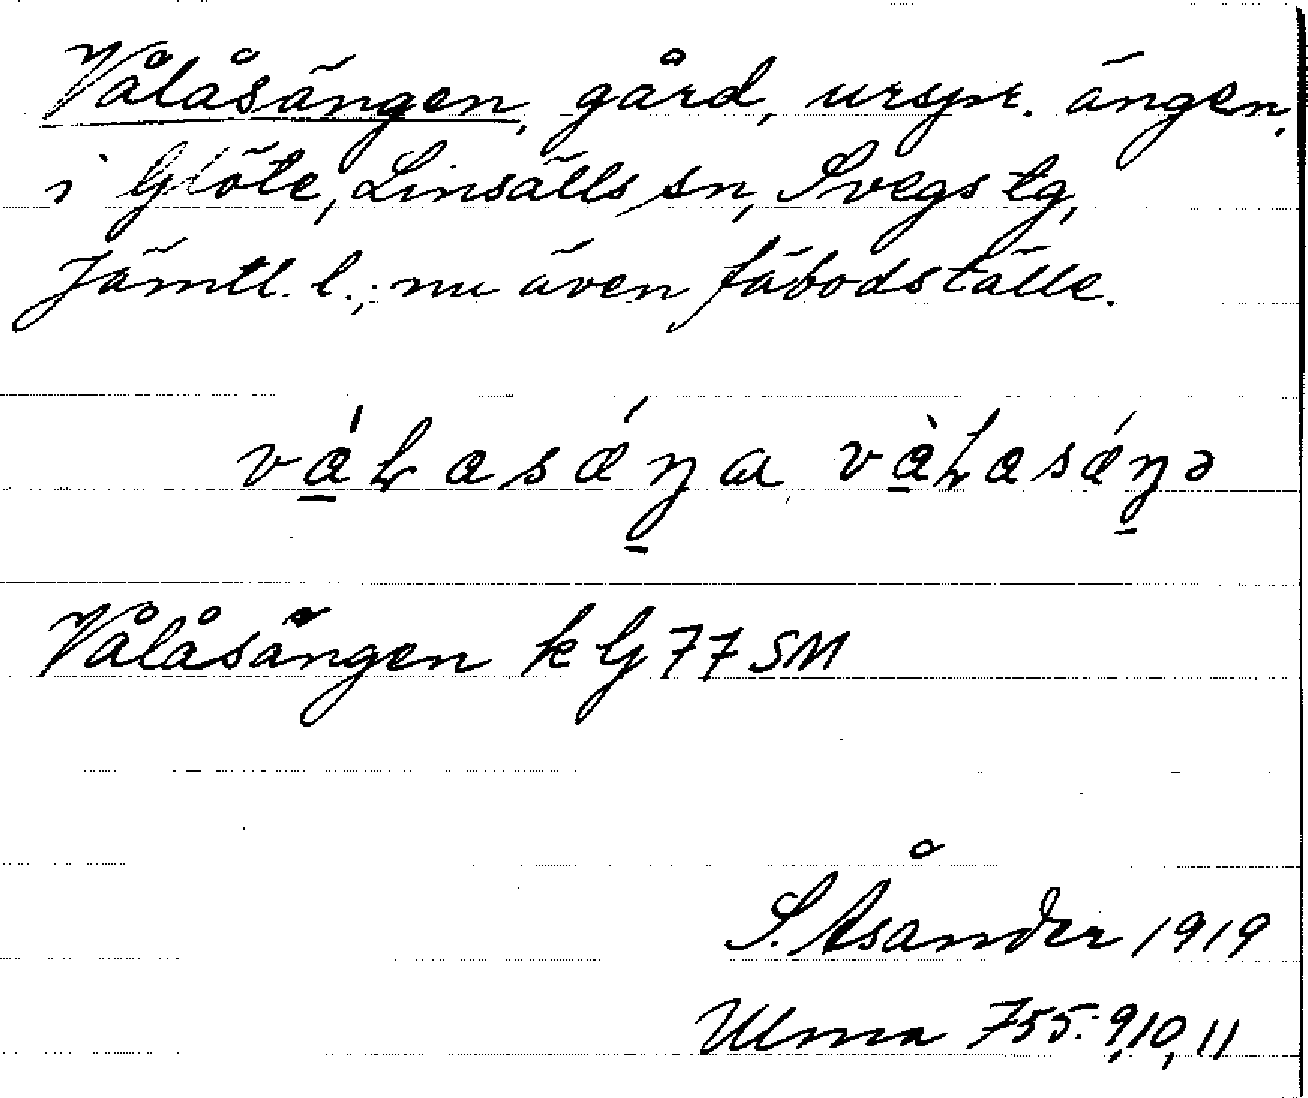 Vålåsängen, gård, urspr. ängen,
i Glöte, Linsälls sn, Svegs tg,
Jämtl. l.; nu även fäbodställe.
Vålåsängen k Gj 77 SM
S. Åsander 1919
Ulma 755:9,10,11